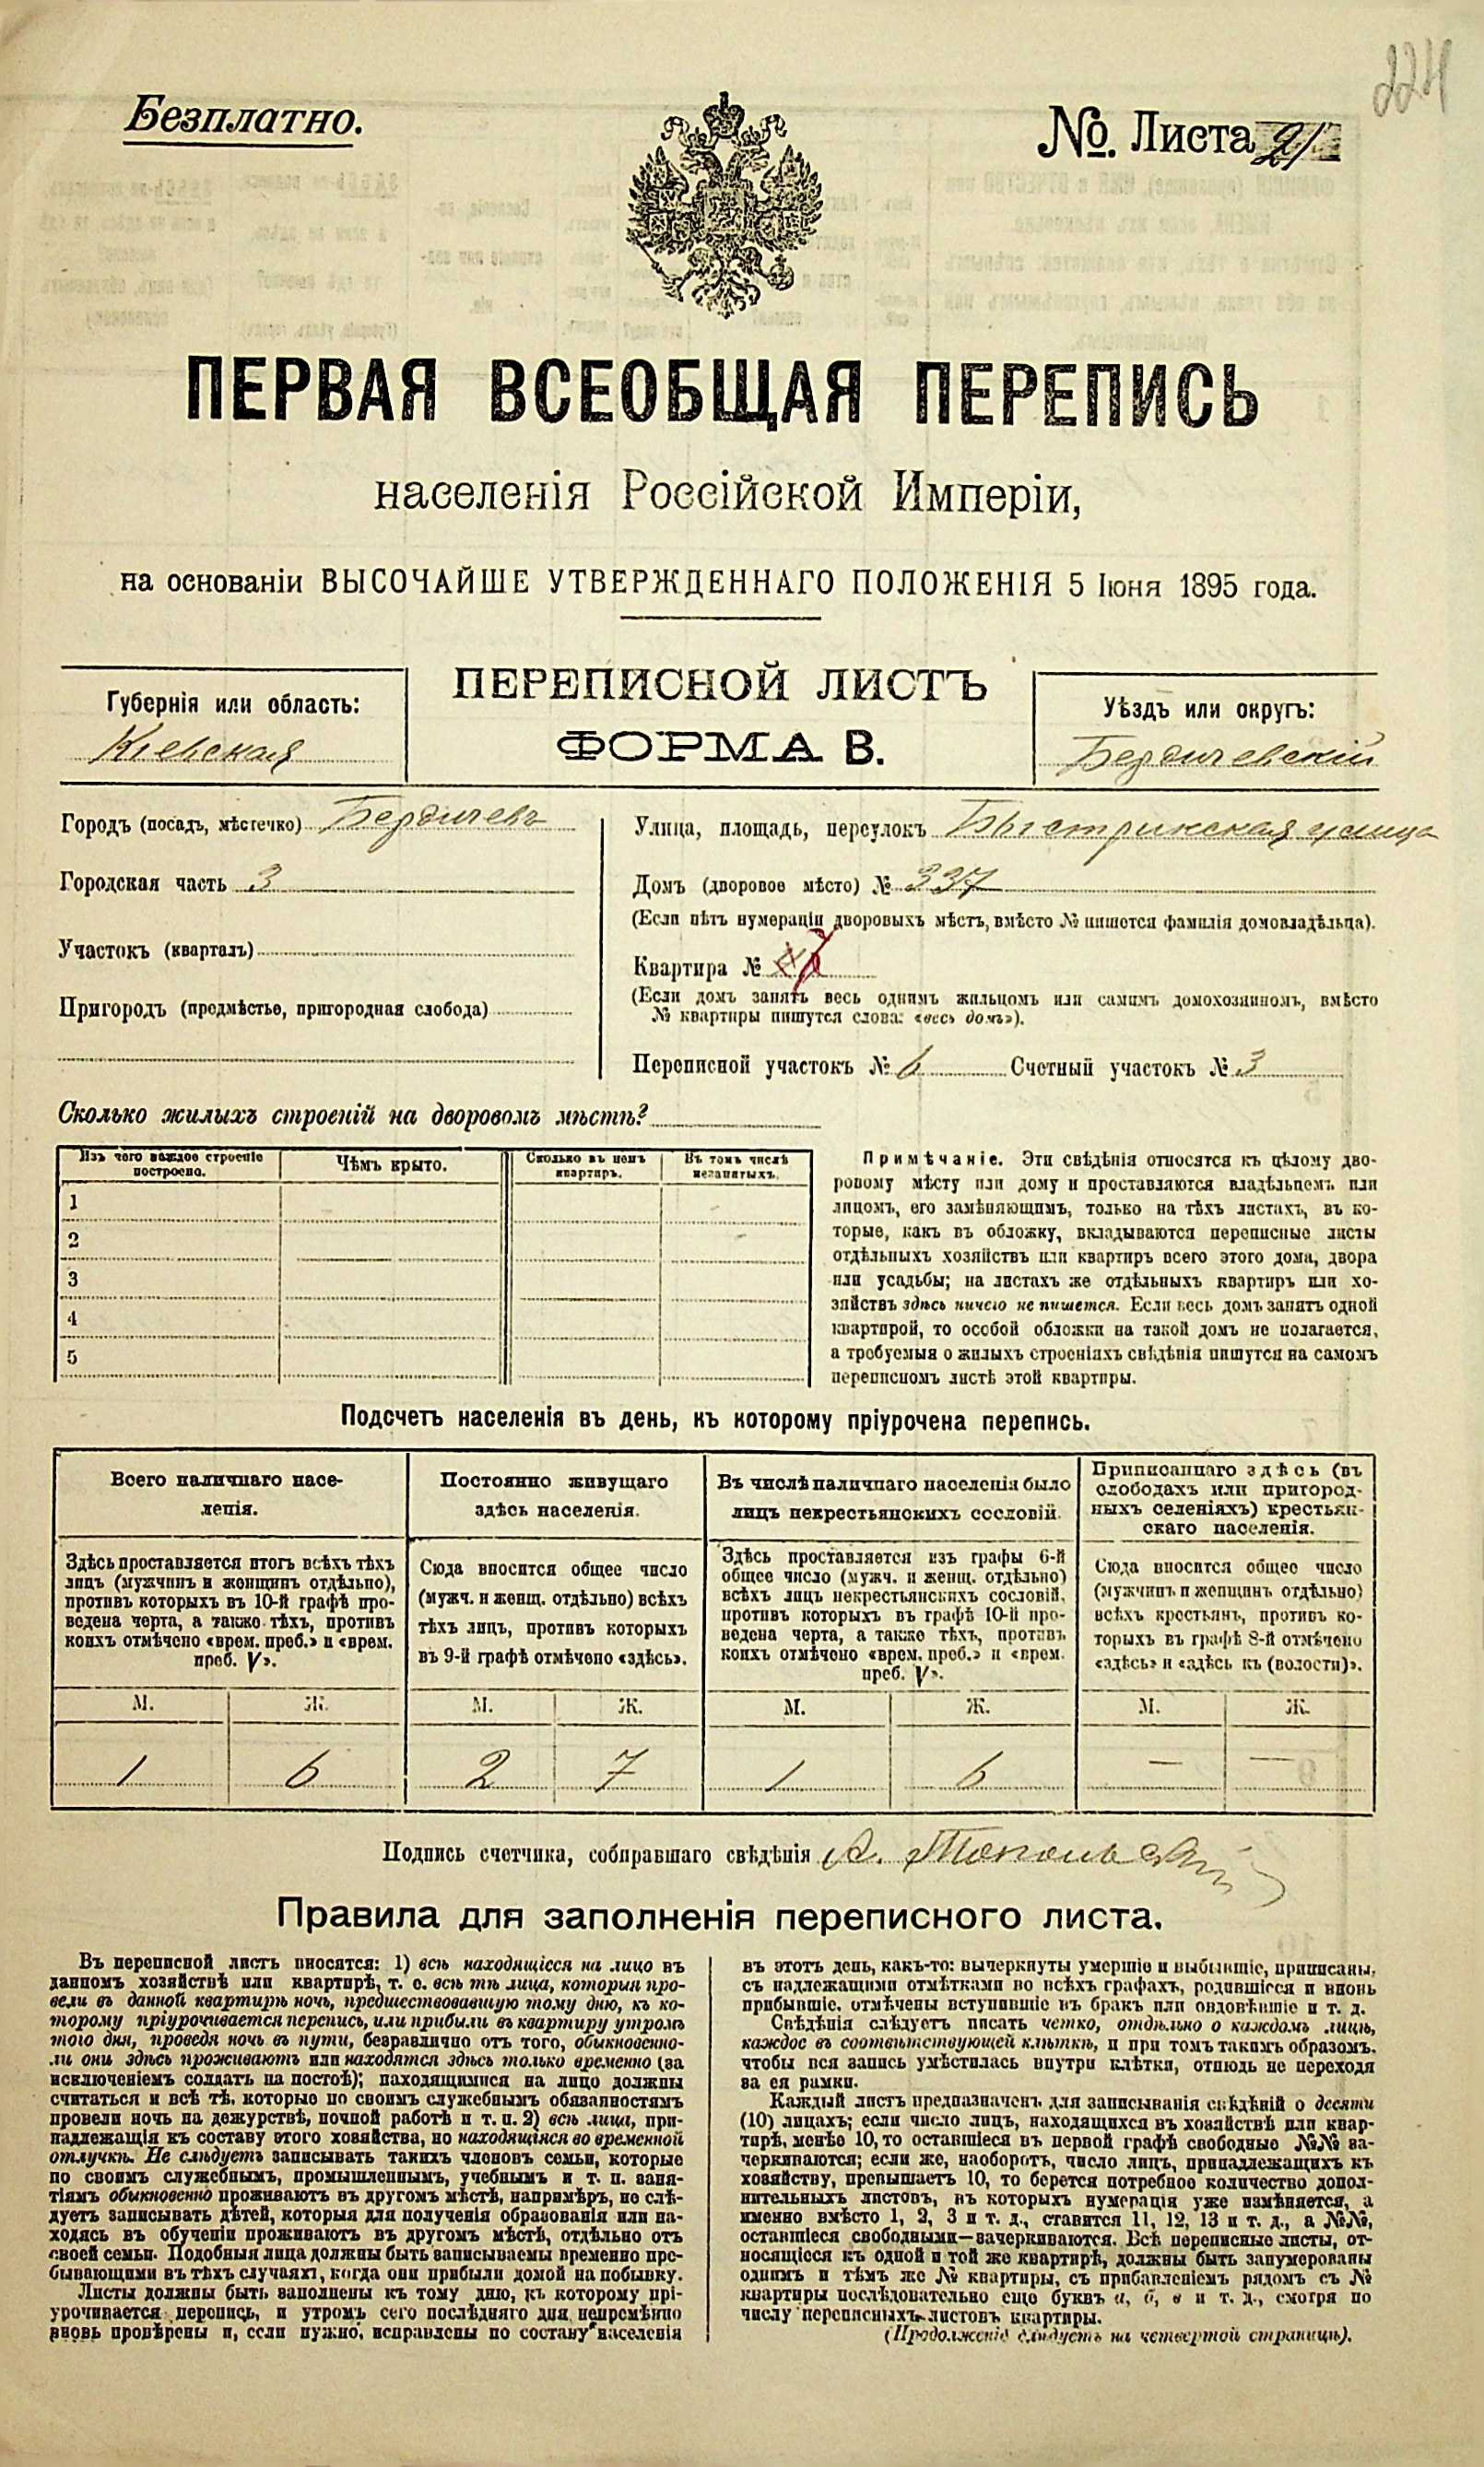 224
Безплатно.
№. Листа 21
ПЕРВАЯ ВСЕОБЩАЯ ПЕРЕПИСЬ
населенія Россійской Имперіи,
на основаніи ВЫСОЧАЙШЕ УТВЕРЖДЕННАГО ПОЛОЖЕНІЯ 5 Іюня 1895 года.
ПЕРЕПИСНОЙ ЛИСТЪ
ФОРМА В.
Губернія или область:
Кіевская
Уѣздъ или округъ:
Бердичевскій
Городъ (посадъ, мѣстечко) Бердичевъ
Городская часть 3
Участокъ (кварталъ)
Пригородъ (предмѣстье, пригородная слобода)
Улица, площадь, переулокъ Быстрикская улица
Домъ (дворовое мѣсто) № 337
(Если нѣтъ нумераціи дворовыхъ мѣстъ, вмѣсто № пишется фамилія домовладѣльца).
Квартира №
(Если домъ занятъ весь однимъ жильцомъ или самимъ домохозяиномъ, вмѣсто
№ квартиры пишутся слова: «весь домъ»).
Переписной участокъ № 6 Счетный участокъ № 3
Сколько жилыхъ строеній на дворовомъ мѣстѣ?
Изъ чего каждое строеніе
построено.
Чѣмъ крыто.
Сколько въ немъ
квартиръ.
Въ томъ числѣ
незанятыхъ.
1
2
3
4
5
Примѣчаніе. Эти свѣдѣнія относятся къ цѣлому дво-
ровому мѣсту или дому и проставляются владѣльцемъ или
лицомъ, его замѣняющимъ, только на тѣхъ листахъ, въ ко-
торые, какъ въ обложку, вкладываются переписные листы
отдѣльныхъ хозяйствъ или квартиръ всего этого дома, двора
или усадьбы; на листахъ же отдѣльныхъ квартиръ или хо-
зяйствъ здѣсь ничего не пишется. Если весь домъ занятъ одной
квартирой, то особой обложки на такой домъ не полагается,
а требуемыя о жилыхъ строеніяхъ свѣдѣнія пишутся на самомъ
переписномъ листѣ этой квартиры.
Подсчетъ населенія въ день, къ которому пріурочена перепись.
Всего наличнаго насе-
ленія.
Здѣсь проставляется итогъ всѣхъ тѣхъ
лицъ (мужчинъ и женщинъ отдѣльно),
противъ которыхъ въ 10-й графѣ про-
ведена черта, а также тѣхъ, противъ
коихъ отмѣчено «врем. преб.» и «врем.
преб. V».
Постоянно живущаго
здѣсь населенія.
Сюда вносится общее число
(мужч. и женщ. отдѣльно) всѣхъ
тѣхъ лицъ, противъ которыхъ
въ 9-й графѣ отмѣчено «здѣсь».
Въ числѣ наличнаго населенія было
лицъ некрестьянскихъ сословій.
Здѣсь проставляется изъ графы 6-й
общее число (мужч. и женщ. отдѣльно)
всѣхъ лицъ некрестьянскихъ сословій,
противъ которыхъ въ графѣ 10-й про-
ведена черта, а также тѣхъ, противъ
коихъ отмѣчено «врем. преб.» и «врем.
преб. V».
Приписаннаго здѣсь (въ
слободахъ или пригород-
ныхъ селеніяхъ) крестьян-
скаго населенія.
Сюда вносится общее число
(мужчинъ и женщинъ отдѣльно)
всѣхъ крестьянъ, противъ ко-
торыхъ въ графѣ 8-й отмѣчено
«здѣсь» и «здѣсь къ (волости)».
М. Ж. М. Ж. М. Ж. М. Ж.
1 6 2 7 1 6 — —
Подпись счетчика, собиравшаго свѣдѣнія А. Топольскій
Правила для заполненія переписного листа.
Въ переписной листъ вносятся: 1) всѣ находящіеся на лицо въ
данномъ хозяйствѣ или квартирѣ, т. е. всѣ тѣ лица, которыя про-
вели въ данной квартирѣ ночь, предшествовавшую тому дню, къ ко-
торому пріурочивается перепись, или прибыли въ квартиру утромъ
того дня, проведя ночь въ пути, безразлично отъ того, обыкновенно-
ли они здѣсь проживаютъ или находятся здѣсь только временно (за
исключеніемъ солдатъ на постоѣ); находящимися на лицо должны
считаться и всѣ тѣ, которые по своимъ служебнымъ обязанностямъ
провели ночь на дежурствѣ, ночной работѣ и т. п. 2) всѣ лица, при-
надлежащія къ составу этого хозяйства, но находящіяся во временной
отлучкѣ. Не слѣдуетъ записывать такихъ членовъ семьи, которые
по своимъ служебнымъ, промышленнымъ, учебнымъ и т. п. заня-
тіямъ обыкновенно проживаютъ въ другомъ мѣстѣ, напримѣръ, не слѣ-
дуетъ записывать дѣтей, которыя для полученія образованія или на-
ходясь въ обученіи проживаютъ въ другомъ мѣстѣ, отдѣльно отъ
своей семьи. Подобныя лица должны быть записываемы временно пре-
бывающими въ тѣхъ случаяхъ, когда они прибыли домой на побывку.
Листы должны быть заполнены къ тому дню, къ которому прі-
урочивается перепись, и утромъ сего послѣдняго дня непремѣнно
вновь провѣрены и, если нужно, исправлены по составу населенія
въ этотъ день, какъ-то: вычеркнуты умершіе и выбывшіе, приписаны,
съ надлежащими отмѣтками во всѣхъ графахъ, родившіеся и вновь
прибывшіе, отмѣчены вступившіе въ бракъ или овдовѣвшіе и т. д.
Свѣдѣнія слѣдуетъ писать четко, отдѣльно о каждомъ лицѣ,
каждое въ соотвѣтствующей клѣткѣ, и при томъ такимъ образомъ,
чтобы вся запись умѣстилась внутри клѣтки, отнюдь не переходя
за ея рамки.
Каждый листъ предназначенъ для записыванія свѣдѣній о десяти
(10) лицахъ; если число лицъ, находящихся въ хозяйствѣ или квар-
тирѣ, менѣе 10, то оставшіеся въ первой графѣ свободные №№ за-
черкиваются; если же, наоборотъ, число лицъ, принадлежащихъ къ
хозяйству, превышаетъ 10, то берется потребное количество допол-
нительныхъ листовъ, въ которыхъ нумерація уже измѣняется, а
именно вмѣсто 1, 2, 3 и т. д., ставится 11, 12, 13 и т. д., а №№,
оставшіеся свободными—зачеркиваются. Всѣ переписные листы, от-
носящіеся къ одной и той же квартирѣ, должны быть занумерованы
однимъ и тѣмъ же № квартиры, съ прибавленіемъ рядомъ съ №
квартиры послѣдовательно еще буквъ а, б, в и т. д., смотря по
числу переписныхъ листовъ квартиры.
(Продолженіе слѣдуетъ на четвертой страницѣ).